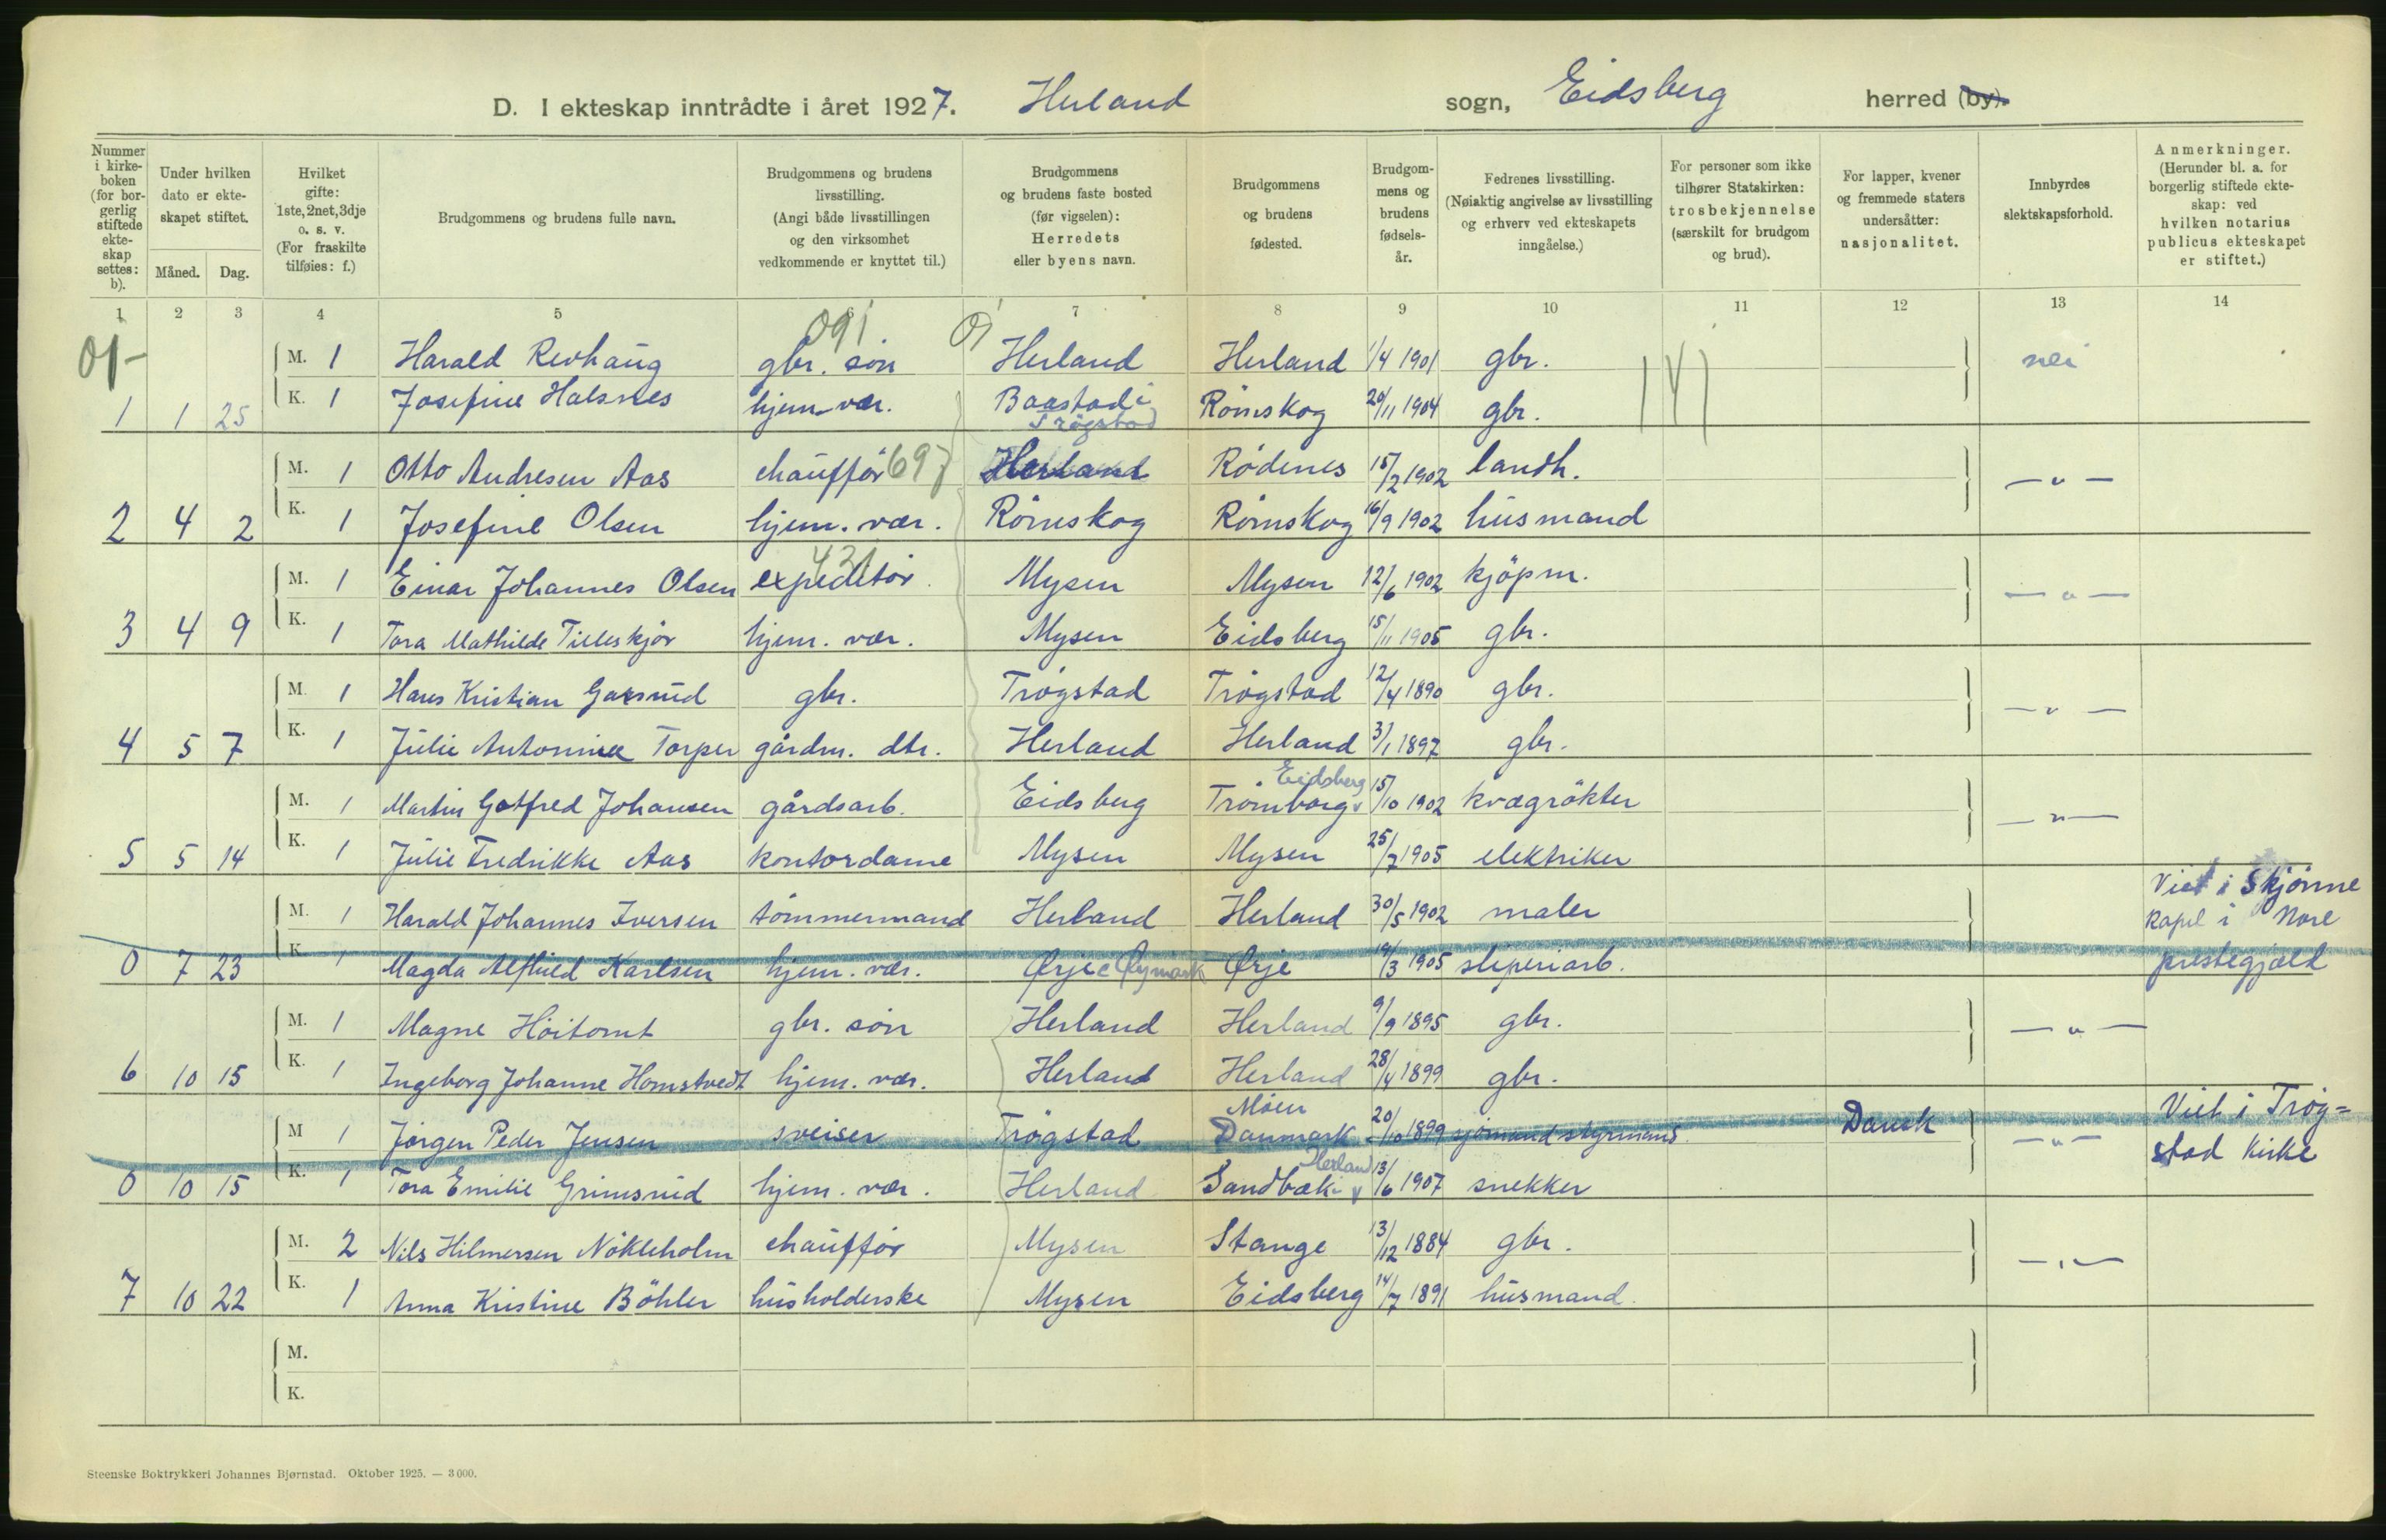 D. I ekteskap inntrådte i året 1927. Herland sogn, Eidsberg herred (by).
Nummer i kirke- boken (for bor- gerlig stiftede ekte- skap settes: b).
Under hvilken dato er ekte- skapet stiftet.
Måned. Dag.
Hvilket gifte: 1ste, 2net, 3dje o. s. v. (For fraskilte tilføies: f.)
Brudgommens og brudens fulle navn.
Brudgommens og brudens livsstilling. (Angi både livsstillingen og den virksomhet vedkommende er knyttet til.)
Brudgommens og brudens faste bosted (før vigselen): Herredets eller byens navn.
Brudgommens og brudens fødested.
Brudgom- mens og brudens fødsels- år.
Fedrenes livsstilling. (Nøiaktig angivelse av livsstilling og erhverv ved ekteskapets inngåelse.)
For personer som ikke tilhører Statskirken: trosbekjennelse (særskilt for brudgom og brud).
For lapper, kvener og fremmede staters undersåtter: nasjonalitet.
Innbyrdes slektskapsforhold.
Anmerkninger. (Herunder bl. a. for borgerlig stiftede ekte- skap: ved hvilken notarius publicus ekteskapet er stiftet.)
1 2 3 4 5 6 7 8 9 10 11 12 13 14
01- 091 01
M. 1 Harald Revhaug gbr. søn Herland Herland 1/4 1901 gbr. nei
1 1 25 K. 1 Josefine Halsnes hjem. vær. Baastad i Trøgstad Römskog 20/11 1904 gbr. 141
M. 1 Otto Andresen Aas chaufför 697 Herland Rödenes 15/2 1902 landh. — " —
2 4 2 K. 1 Josefine Olsen hjem. vær. Römskog Römskog 16/9 1902 husmand
M. 1 Einar Johannes Olsen expeditör. 431 Mysen Mysen 12/6 1902 kjöpm. — " —
3 4 9 K. 1 Tora Mathilde hjem. vær. Mysen Eidsberg 15/11 1905 gbr.
M. 1 Hans Kristian Garsrud gbr. Trögstad Trögstad 12/4 1890 gbr. — " —
4 5 7 K. 1 Julie Antonine Torper gårdm. dtr. Herland Herland 3/1 1897 gbr.
M. 1 Martin Gotfred Johansen gårdsarb. Eidsberg Trömborg v Eidsberg 15/10 1902 kvægrökter — " —
5 5 14 K. 1 Julie Fredrikke Aas kontordame Mysen Mysen 25/7 1905 elektriker
M. 1 Harald Johannes Iversen tömmermand Herland Herland 30/5 1902 maler Viet i Skjönne kapel i Nore
0 7 23 K. 1 Magda Alfhild Karlsen hjem. vær. Ørje Øymark Ørje 19/3 1905 sliperiarb. prestegjæld
M. 1 Magne Höitomt gbr. sön Herland Herland 9/9 1895 gbr. — " —
6 10 15 K. 1 Ingeborg Johanne Homstvedt hjem. vær. Herland Herland 28/4 1899 gbr.
M 1 Jörgen Peder Jensen sveiser Trögstad Möen Danmark 20/10 1899 sjömand styrmand. Dansk — " — Viet i Trög=
0 10 15 K. 1 Tora Emilie Grimsrud hjem. vær. Herland Sandbæk i Herland v 13/6 1907 snekker stad kirke
M. 2 Nils Hilmersen Nökleholm chaufför Mysen Stange 13/12 1884 gbr. — " —
7 10 22 K. 1 Anna Kristine Böhler husholderske Mysen Eidsberg 14/7 1891 husmand.
M.
K.
Steenske Boktrykkeri Johannes Bjørnstad. Oktober 1925. — 3000.